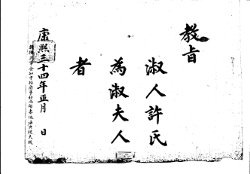 教旨
淑人許氏
為淑夫人
者
康熙三十四年正月　日